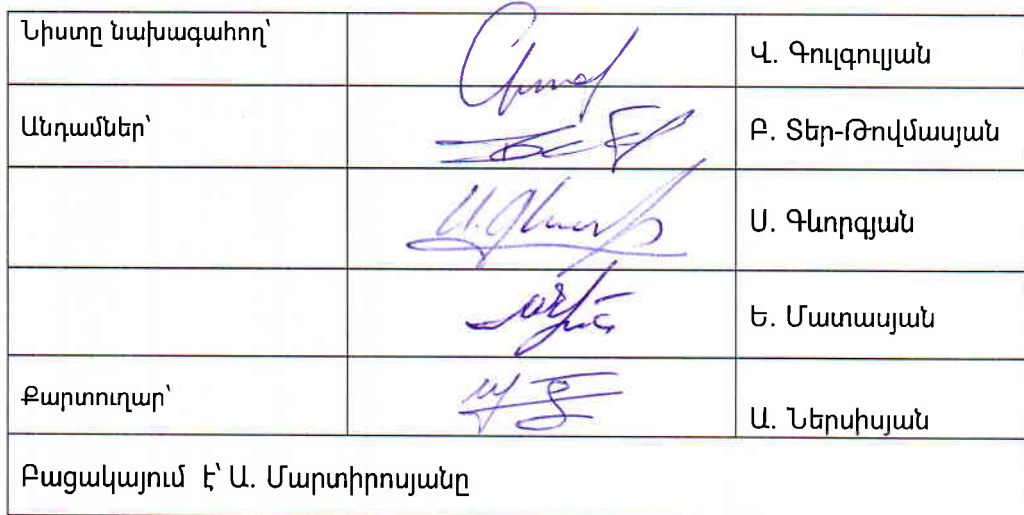 Նիստը նախագահող՝ Վ. Գուլգուլյան
Անդամներ՝ Բ. Տեր-Թովմասյան
Ս. Գևորգյան
Ե. Մատասյան
Քարտուղար՝ Ա. Ներսիսյան
Բացակայում է՝ Ա. Մարտիրոսյանը